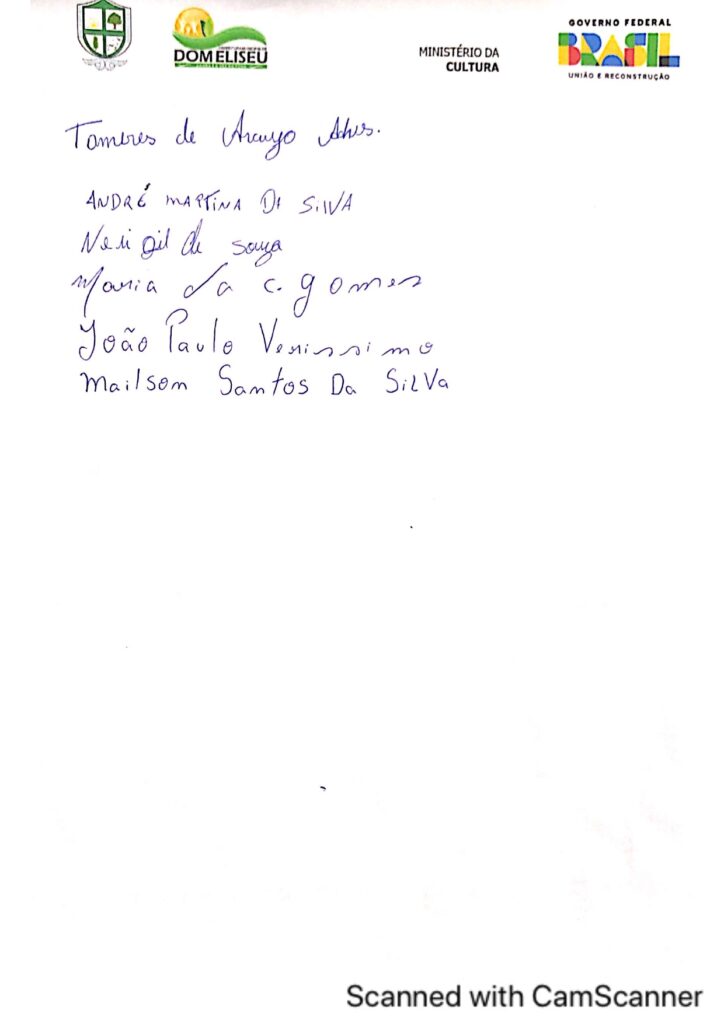 DOM ELISEU
MINISTÉRIO DA
CULTURA
GOVERNO FEDERAL
BRASIL
UNIÃO E RECONSTRUÇÃO
Tamires de Araujo Alves.
ANDRÉ MARTINA DI SILVA
Neri Gil de Souza
Maria da C. Gomes
João Paulo Verissimo
Mailson Santos Da SilVa
Scanned with CamScanner